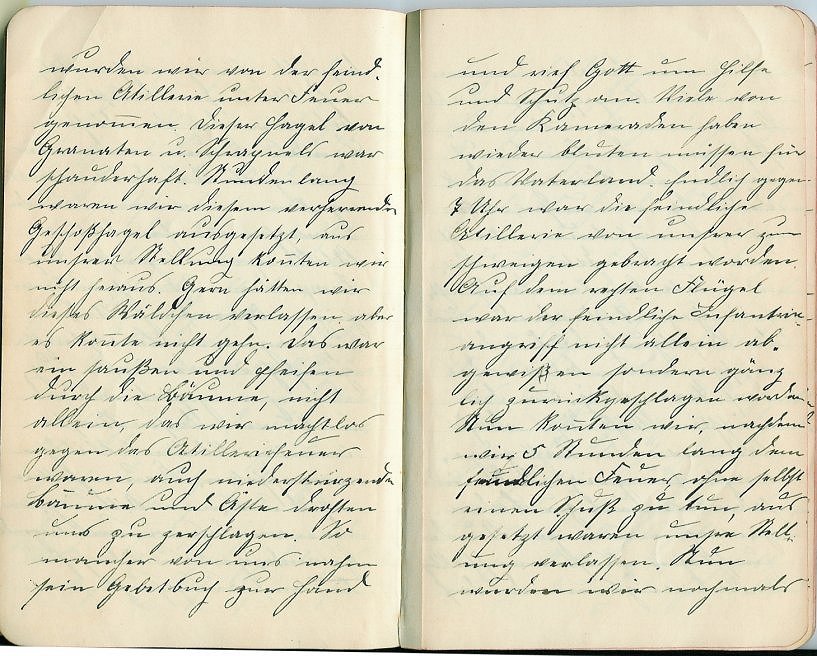 wurden wir von der feind-
lichen Atillerie unter Feuer
genommen. Dieser Hagel von
Granaten u. Schrapnels war
schauderhaft. Stundenlang
waren wir diesem verheerenden
Geschoßhagel ausgesetzt, aus
unsrer Stellung konnten wir
nicht heraus. Gern hätten wir
dieses Wäldchen verlassen, aber
es konnte nicht gehn. Das war
ein saußen und pfeifen
durch die Bäume, nicht
allein, das wir machtlos
gegen das Atilleriefeuer
waren, auch niederstürzende
Bäume und Äste drohten
uns zu zerschlagen. So
mancher von uns nahm
sein Gebetbuch zur Hand
und rief Gott um Hilfe
und Schutz an. Viele von
den Kameraden haben
wieder bluten müssen für
das Vaterland. Endlich gegen
7 Uhr war die feindliche
Atillerie von unsrer zum
schweigen gebracht worden.
Auf dem rechten Flügel
war der feindliche Infantrie-
angriff nicht allein ab-
gewißen sondern gänz
lich zurückgeschlagen worden.
Nun konnten wir, nachdem
wir 5 Stunden lang dem
feindlichen Feuer, ohne selbst
einen Schuß zu tun, aus
gesetzt waren unsre Stell-
ung verlassen. Nun
wurden wir nochmals